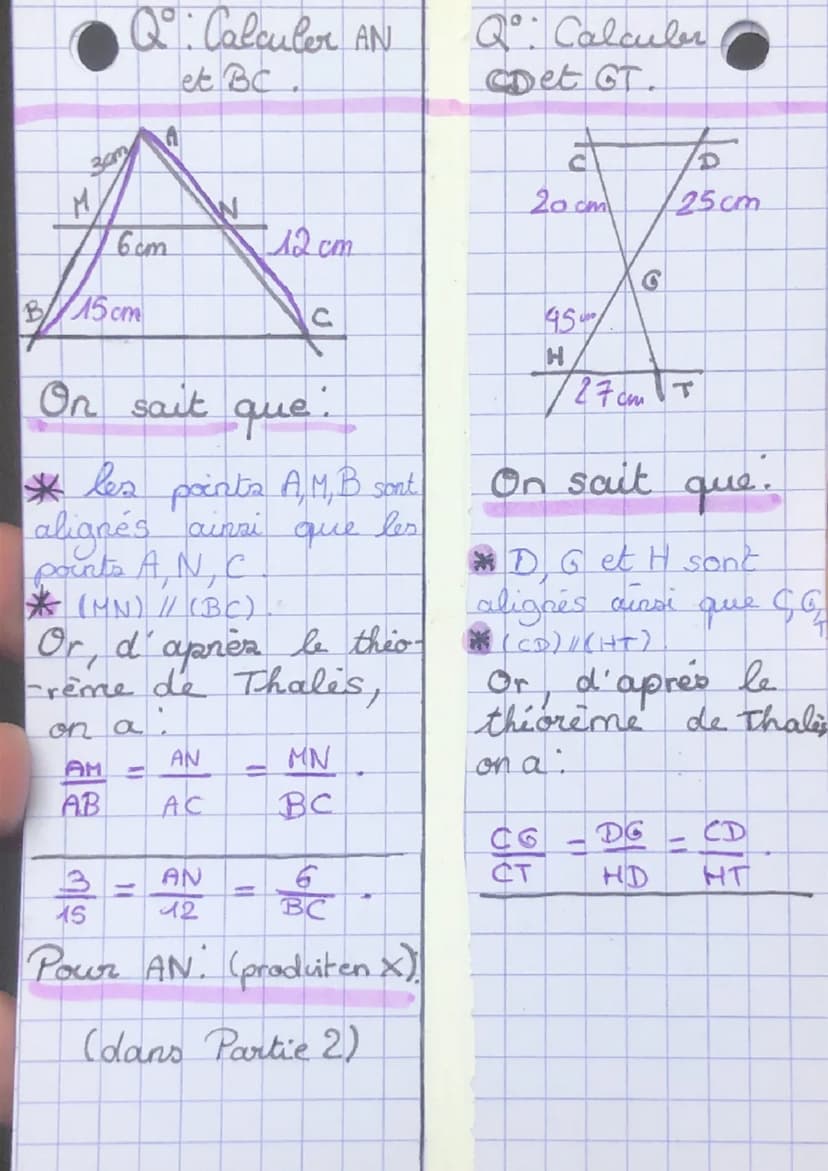 Q°: Calculer AN
et BC.
A
3cm
M
N
6cm
12 cm
B
15 cm
C
On sait que:
* les points A, M, B sont
alignés ainsi que les
points A, N, C
* (MN) // (BC).
Or, d'après le théo-
-rème de Thalès,
on a :
AM/AB = AN/AC = MN/BC.
3/15 = AN/12 = 6/BC.
Pour AN: (produit en X).
(dans Partie 2)
Q°: Calculer
CD et GT.
C
D
20 cm
25 cm
G
45 cm
H
27 cm
T
On sait que:
* D, G et H sont
alignés ainsi que C, G, T
* (CD) // (HT).
Or, d'après le
théorème de Thalès
on a :
CG/CT = DG/HD = CD/HT.